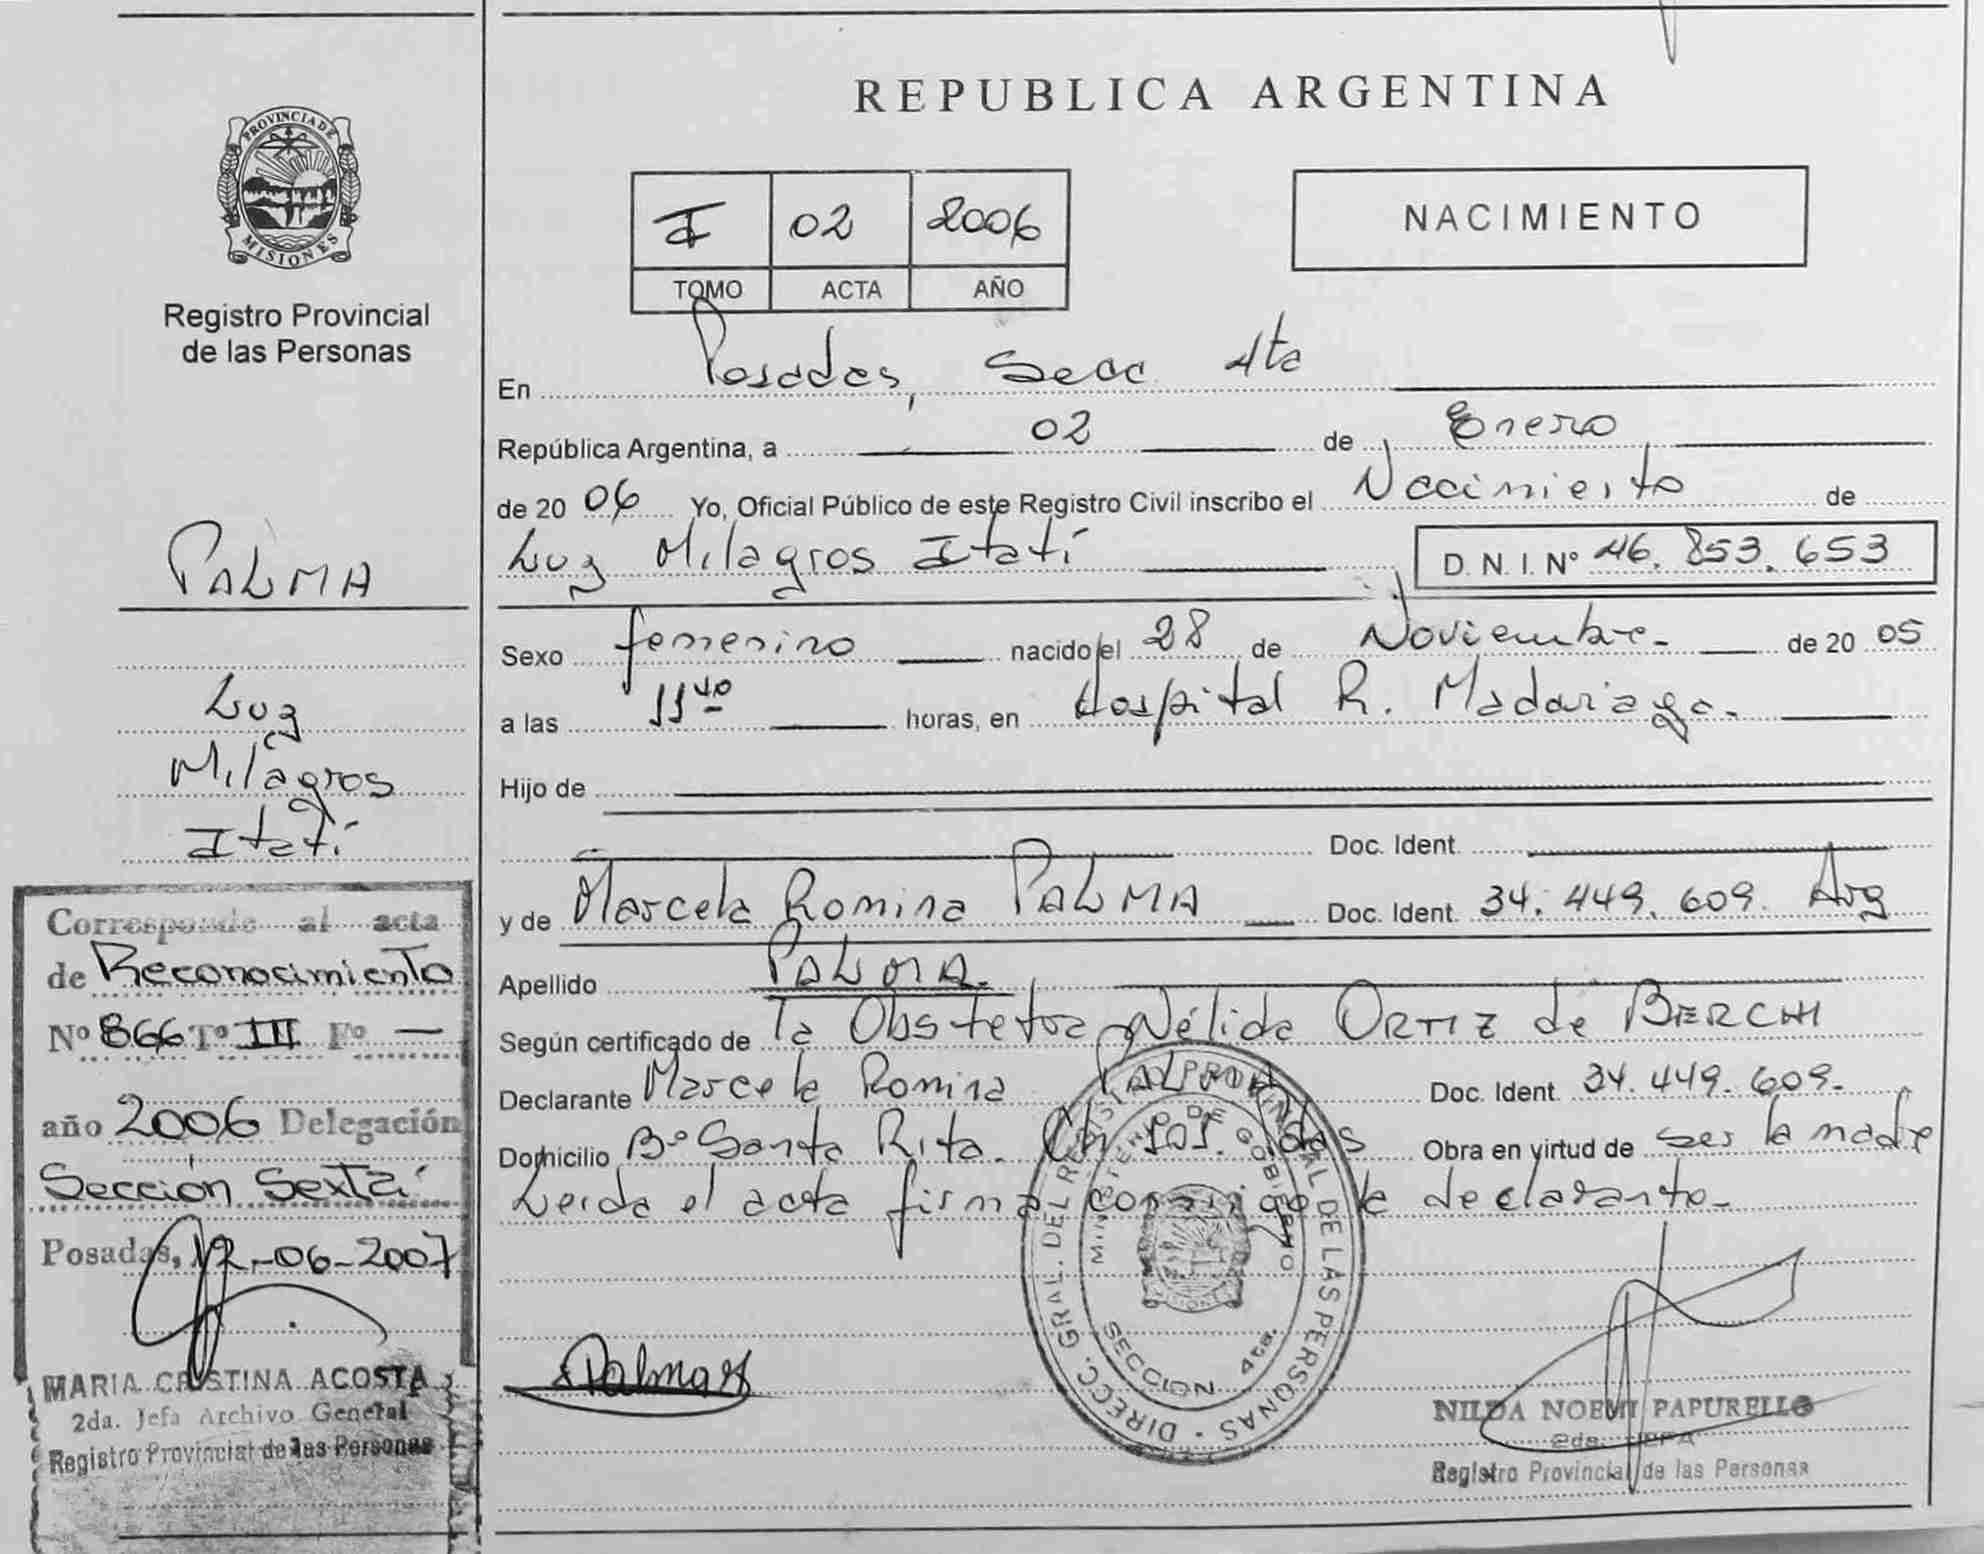 PROVINCIA DE
MISIONES
Registro Provincial
de las Personas
PALMA
Luz
Milagros
Itatí
Corresponde al acta
de Reconocimiento
Nº 866 Tº III Fº —
año 2006 Delegación
Sección Sexta
Posadas, 12-06-2007
MARIA CRISTINA ACOSTA
2da. Jefa Archivo General
Registro Provincial de las Personas
REPUBLICA ARGENTINA
I 02 2006
TOMO ACTA AÑO
NACIMIENTO
En Posadas, Secc 4ta
República Argentina, a 02 de Enero
de 20 06 Yo, Oficial Público de este Registro Civil inscribo el Nacimiento de
Luz Milagros Itatí D.N.I. Nº 46.853.653
Sexo femenino nacido el 28 de Noviembre de 20 05
a las 11 40 horas, en Hospital R. Madariaga.
Hijo de
Doc. Ident.
y de Marcela Romina PALMA Doc. Ident. 34.449.609. Arg
Apellido PALMA.
Según certificado de la Obstetra Nélida ORTIZ de BERCHI
Declarante Marcela Romina PALMA Doc. Ident. 34.449.609.
Domicilio Bº Santa Rita. Ch 101. Pdas Obra en virtud de ser la madre
Leida el acta firma conmigo la declarante.
DIRECC. GRAL. DEL REGISTRO PROVINCIAL DE LAS PERSONAS
MINISTERIO DE GOBIERNO
SECCION 4ta.
Palma
NILDA NOEMI PAPURELLO
2da. JEFA
Registro Provincial de las Personas